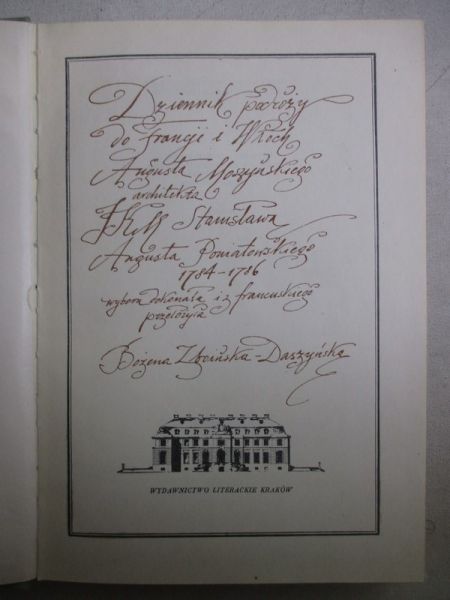 Dziennik podróży
do Francji i Włoch
Augusta Moszyńskiego
architekta
JKM Stanisława
Augusta Poniatowskiego
1784-1786
wyboru dokonała i z francuskiego
przełożyła
Bożena Zboińska-Daszyńska
WYDAWNICTWO LITERACKIE KRAKÓW